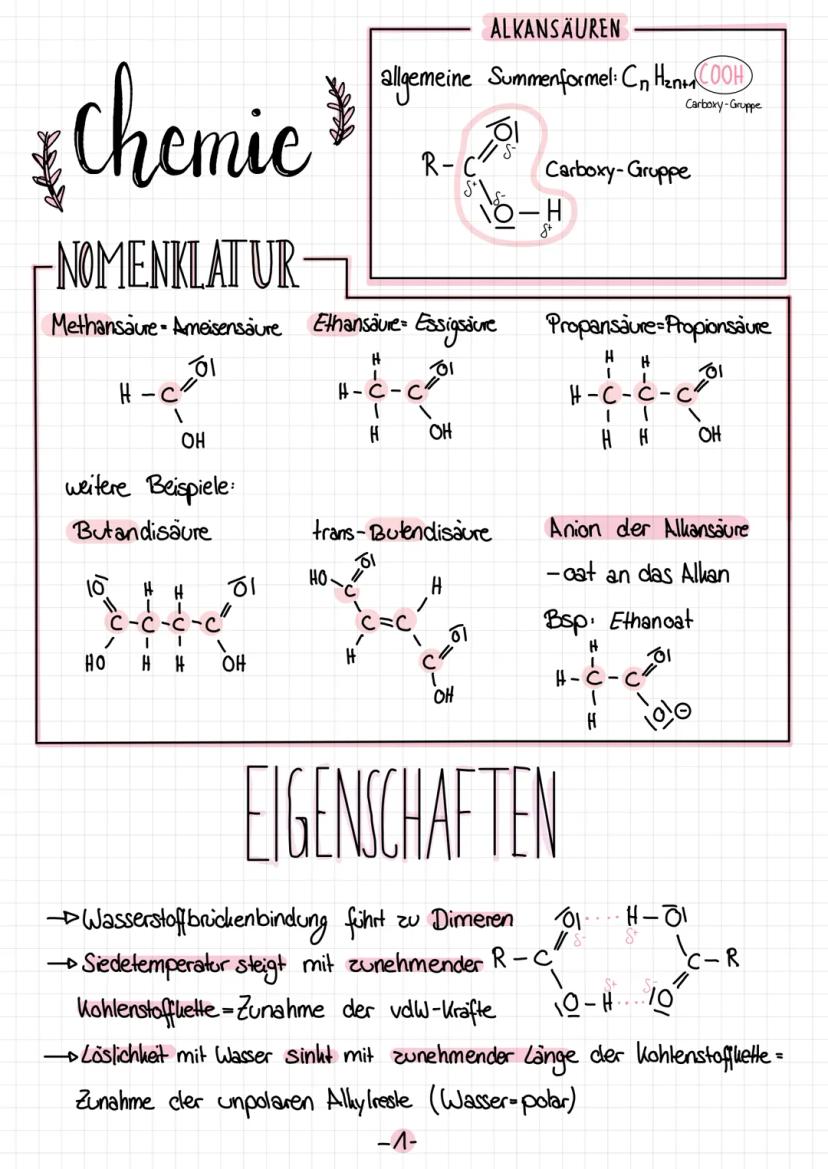 Chemie
ALKANSÄUREN
allgemeine Summenformel: Cn H2n+1 COOH
Carboxy-Gruppe
R-C
O
δ-
δ+
δ-
O-H
δ+
Carboxy-Gruppe
NOMENKLATUR
Methansäure = Ameisensäure
H-C
O
OH
Ethansäure = Essigsäure
H
H-C-C
O
H
OH
Propansäure = Propionsäure
H H
H-C-C-C
O
H H
OH
weitere Beispiele:
Butandisäure
O H H O
C-C-C-C
HO H H OH
trans-Butendisäure
O
HO C
H
C=C
H
O
C
OH
Anion der Alkansäure
-oat an das Alkan
Bsp: Ethanoat
H
H-C-C
O
H
O⊖
EIGENSCHAFTEN
→ Wasserstoffbrückenbindung führt zu Dimeren
→ Siedetemperatur steigt mit zunehmender
Kohlenstoffkette = Zunahme der vdW-Kräfte
O ···· H-O
δ- δ+
R-C C-R
δ+ δ-
O-H ···· O
→ Löslichkeit mit Wasser sinkt mit zunehmender Länge der Kohlenstoffkette =
Zunahme der unpolaren Alkylreste (Wasser = polar)
-1-